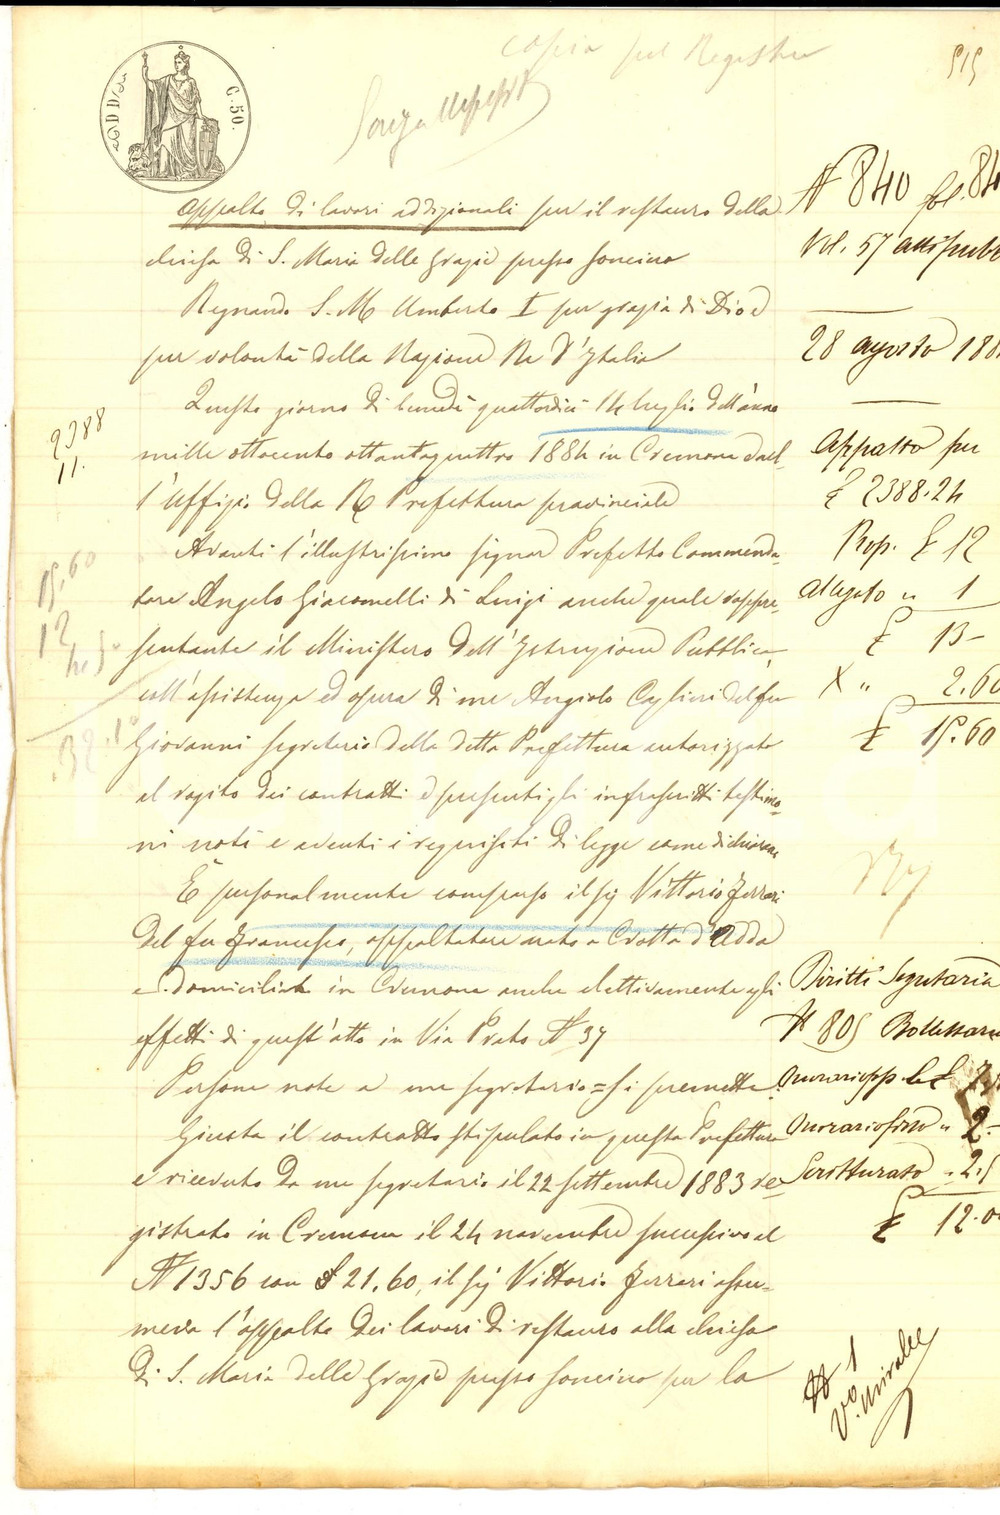 copia pel Registro
515
C. 50.
Appalto di lavori addizionali per il restauro della
chiesa di S. Maria delle Grazie presso Soncino
Regnando S. M. Umberto I per grazia di Dio e
per volontà della Nazione Re d'Italia
Questo giorno di lunedì quattordici 14 luglio dell'anno
mille ottocento ottantaquattro 1884 in Cremona dal-
l'Uffizio della R. Prefettura provinciale
Avanti l'illustrissimo signor Prefetto Commenda-
tore Angelo Giacomelli di Luigi anche quale rappre-
sentante il Ministero dell'Istruzione Pubblica,
coll'assistenza ed opera di me Angiolo Caglieri del fu
Giovanni segretario della detta Prefettura autorizzato
al rogito dei contratti e presenti gli infrascritti testimo-
ni noti e aventi i requisiti di legge come dichiarano
È personalmente comparso il sig Vittorio Ferrari
del fu Francesco, appaltatore nato a Crotta d'Adda
e domiciliato in Cremona anche elettivamente agli
effetti di quest'atto in Via Prato N 37
Persone note a me segretario = Si premette
Giusta il contratto stipulato in questa Prefettura
e ricevuto da me segretario il 22 settembre 1883 re-
gistrato in Cremona il 24 novembre successivo al
N 1356 con £ 21.60, il sig Vittorio Ferrari assu-
meva l'appalto dei lavori di restauro alla chiesa
di S. Maria delle Grazie presso Soncino per la
2388
11.
15.60
12
N 840 fol. 84
Vol. 57 atti pubb
28 agosto 188
Appalto per
£ 2388.24
Rep. £ 12
Allegato " 1
£ 13-
X " 2.60
£ 15.60
Diritti Segretaria
N 805 Bollettario
£
" 2-
Scritturato " 2.5
£ 12.0
N 1